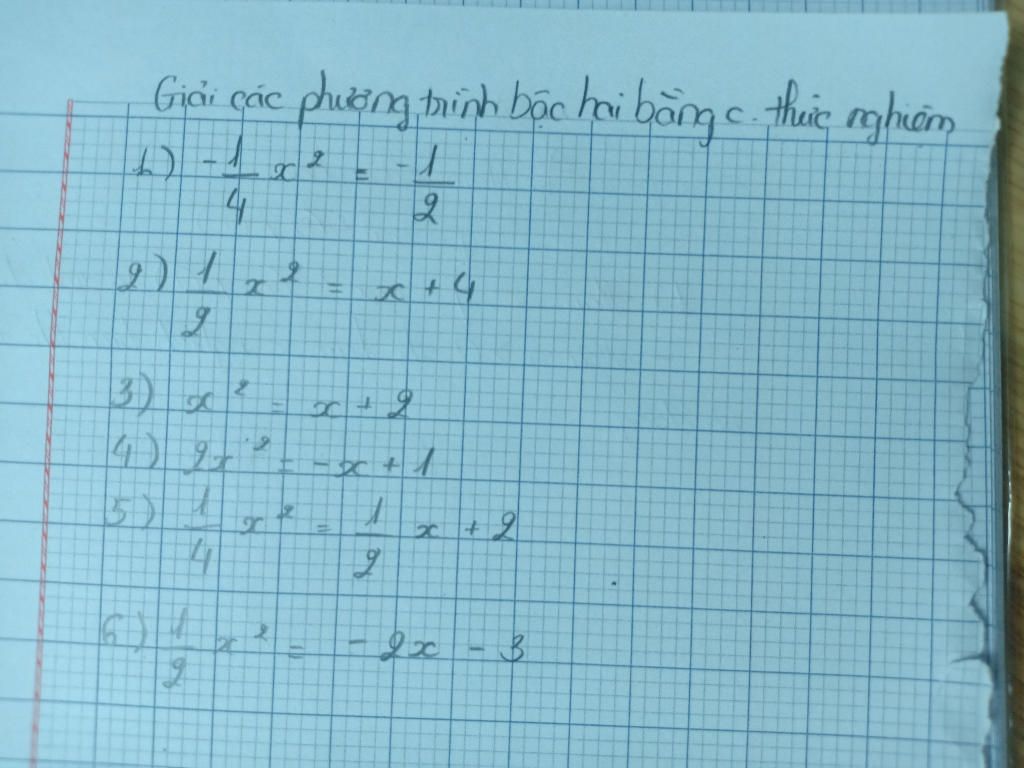 Giải các phương trình bậc hai bằng c. thức nghiệm
1) -1/4 x² = -1/2
2) 1/2 x² = x + 4
3) x² = x + 2
4) 2x² = -x + 1
5) 1/4 x² = 1/2 x + 2
6) 1/2 x² = -2x - 3